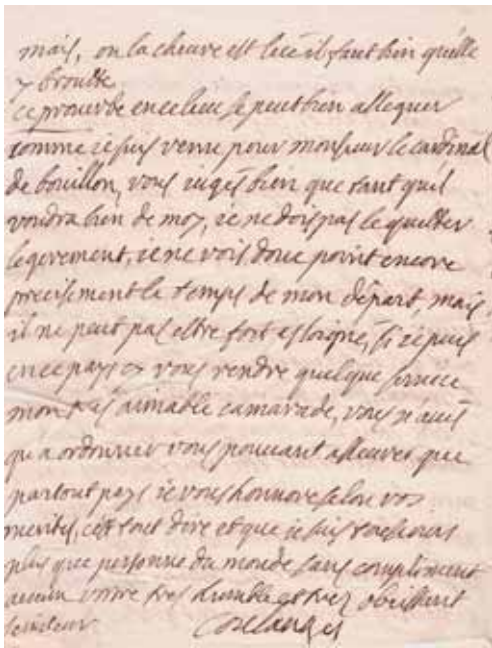 mais, ou la cheure est liée il faut bien qu'elle
y broutte,
ce prouerbe en ce lieu se peut bien alleguer
comme ie suis venu pour monsieur le cardinal
de bouillon, vous iugés bien que tant qu'il
voudra bien de moy, ie ne dois pas le quitter
legerement, ie ne vois donc point encore
precisement le temps de mon départ, mais
il ne peut pas estre fort esloigné, si ie puis
en ce pays cy vous rendre quelque seruice
mon tres aimable camarade, vous n'aués
qu'a ordonner vous pouuant asseurer que
partout pays ie vous honnore selon vos
merites, c'est tout dire et que ie suis tousiours
plus que personne du monde sans compliment
aucun vostre tres humble et tres obeissant
seruiteur Coulanges